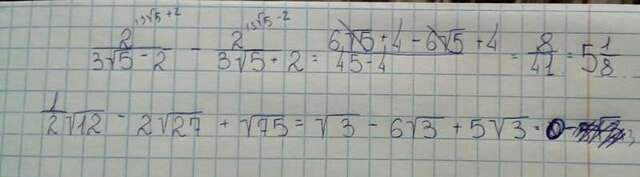 2^{3√5+2}/(3√5-2) - 2^{3√5-2}/(3√5+2) = (6√5+4-6√5+4)/(45-4) = 8/41 = 5 1/8
1/2 √12 - 2√27 + √75 = √3 - 6√3 + 5√3 = 0